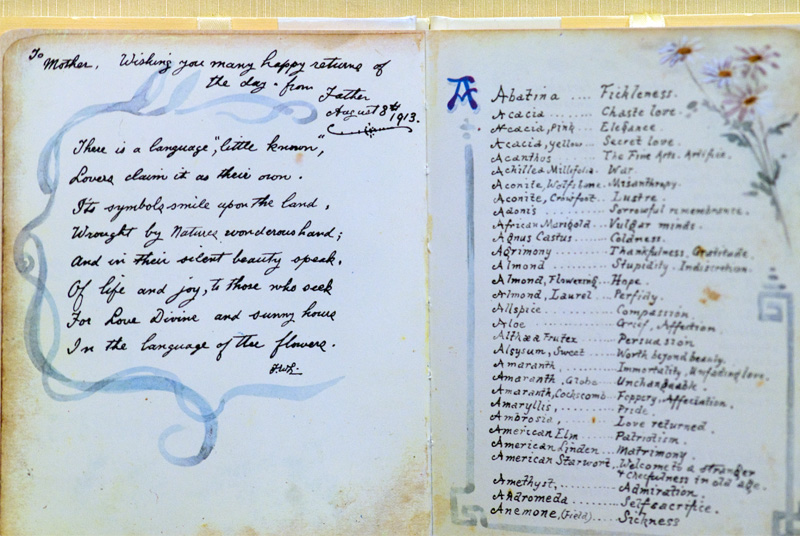 To
Mother, Wishing you many happy returns of
the day. from
Father
August 8th
1913.
There is a language, "little known",
Lovers claim it as their own.
Its symbols smile upon the land,
Wrought by Natures wonderous hand;
And in their silent beauty speak,
Of life and joy, to those who seek
For Love Divine and sunny hours
In the language of the flowers.
A
Abatina .... Fickleness.
Acacia ...... Chaste love.
Acacia, Pink .. Elegance.
Acacia, yellow .. Secret love.
Acanthos ..... The Fine Arts. Artifice.
Achillea Millifolia. War.
Aconite, Wolfsbane. Misanthropy.
Aconite, Crowfoot. Lustre.
Adonis ...... Sorrowful remembrance.
African Marigold .. Vulgar minds.
Agnus Castus ... Coldness.
Agrimony ...... Thankfulness, Gratitude.
Almond ...... Stupidity. Indiscretion.
Almond, Flowering. Hope.
Almond, Laurel .. Perfidy.
Allspice ........ Compassion.
Aloe ........ Grief, Affection.
Althæa Frutex .... Persuasion
Alysum, Sweet .... Worth beyond beauty.
Amaranth ....... Immortality, Unfading love.
Amaranth, Globe . Unchangeable.
Amaranth, Cockscomb. Foppery, Affectation.
Amaryllis, ...... Pride.
Ambrosia, ....... Love returned.
American Elm .... Patriotism.
American Linden .. Matrimony.
American Starwort. Welcome to a stranger
& Cheefulness in old age.
Amethyst, ........ Admiration.
Andromeda ....... Self sacrifice.
Anemone, (Field) .... Sickness